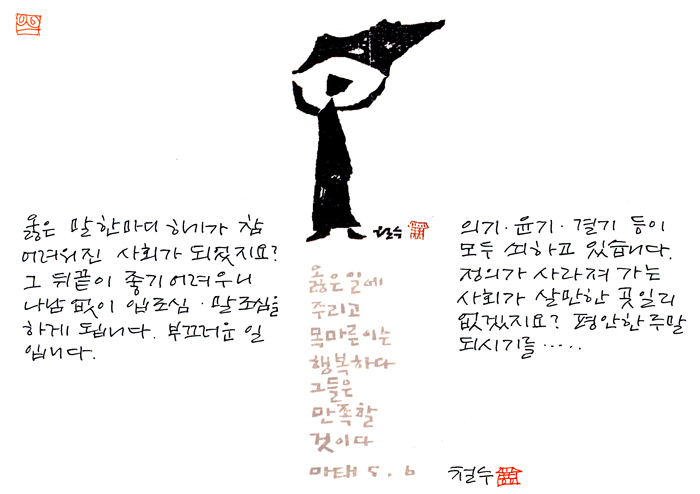 철수
옳은 말 한마디 하기가 참
어려워진 사회가 되었지요?
그 뒤끝이 좋기 어려우니
나남 없이 입조심·말조심을
하게 됩니다. 부끄러운 일
입니다.
옳은일에
주리고
목마른이는
행복하다
그들은
만족할
것이다
마태 5.6
의기·윤기·결기 등이
모두 쇠하고 있습니다.
정의가 사라져 가는
사회가 살만한 곳일리
없겠지요? 평안한 주말
되시기를.....
철수